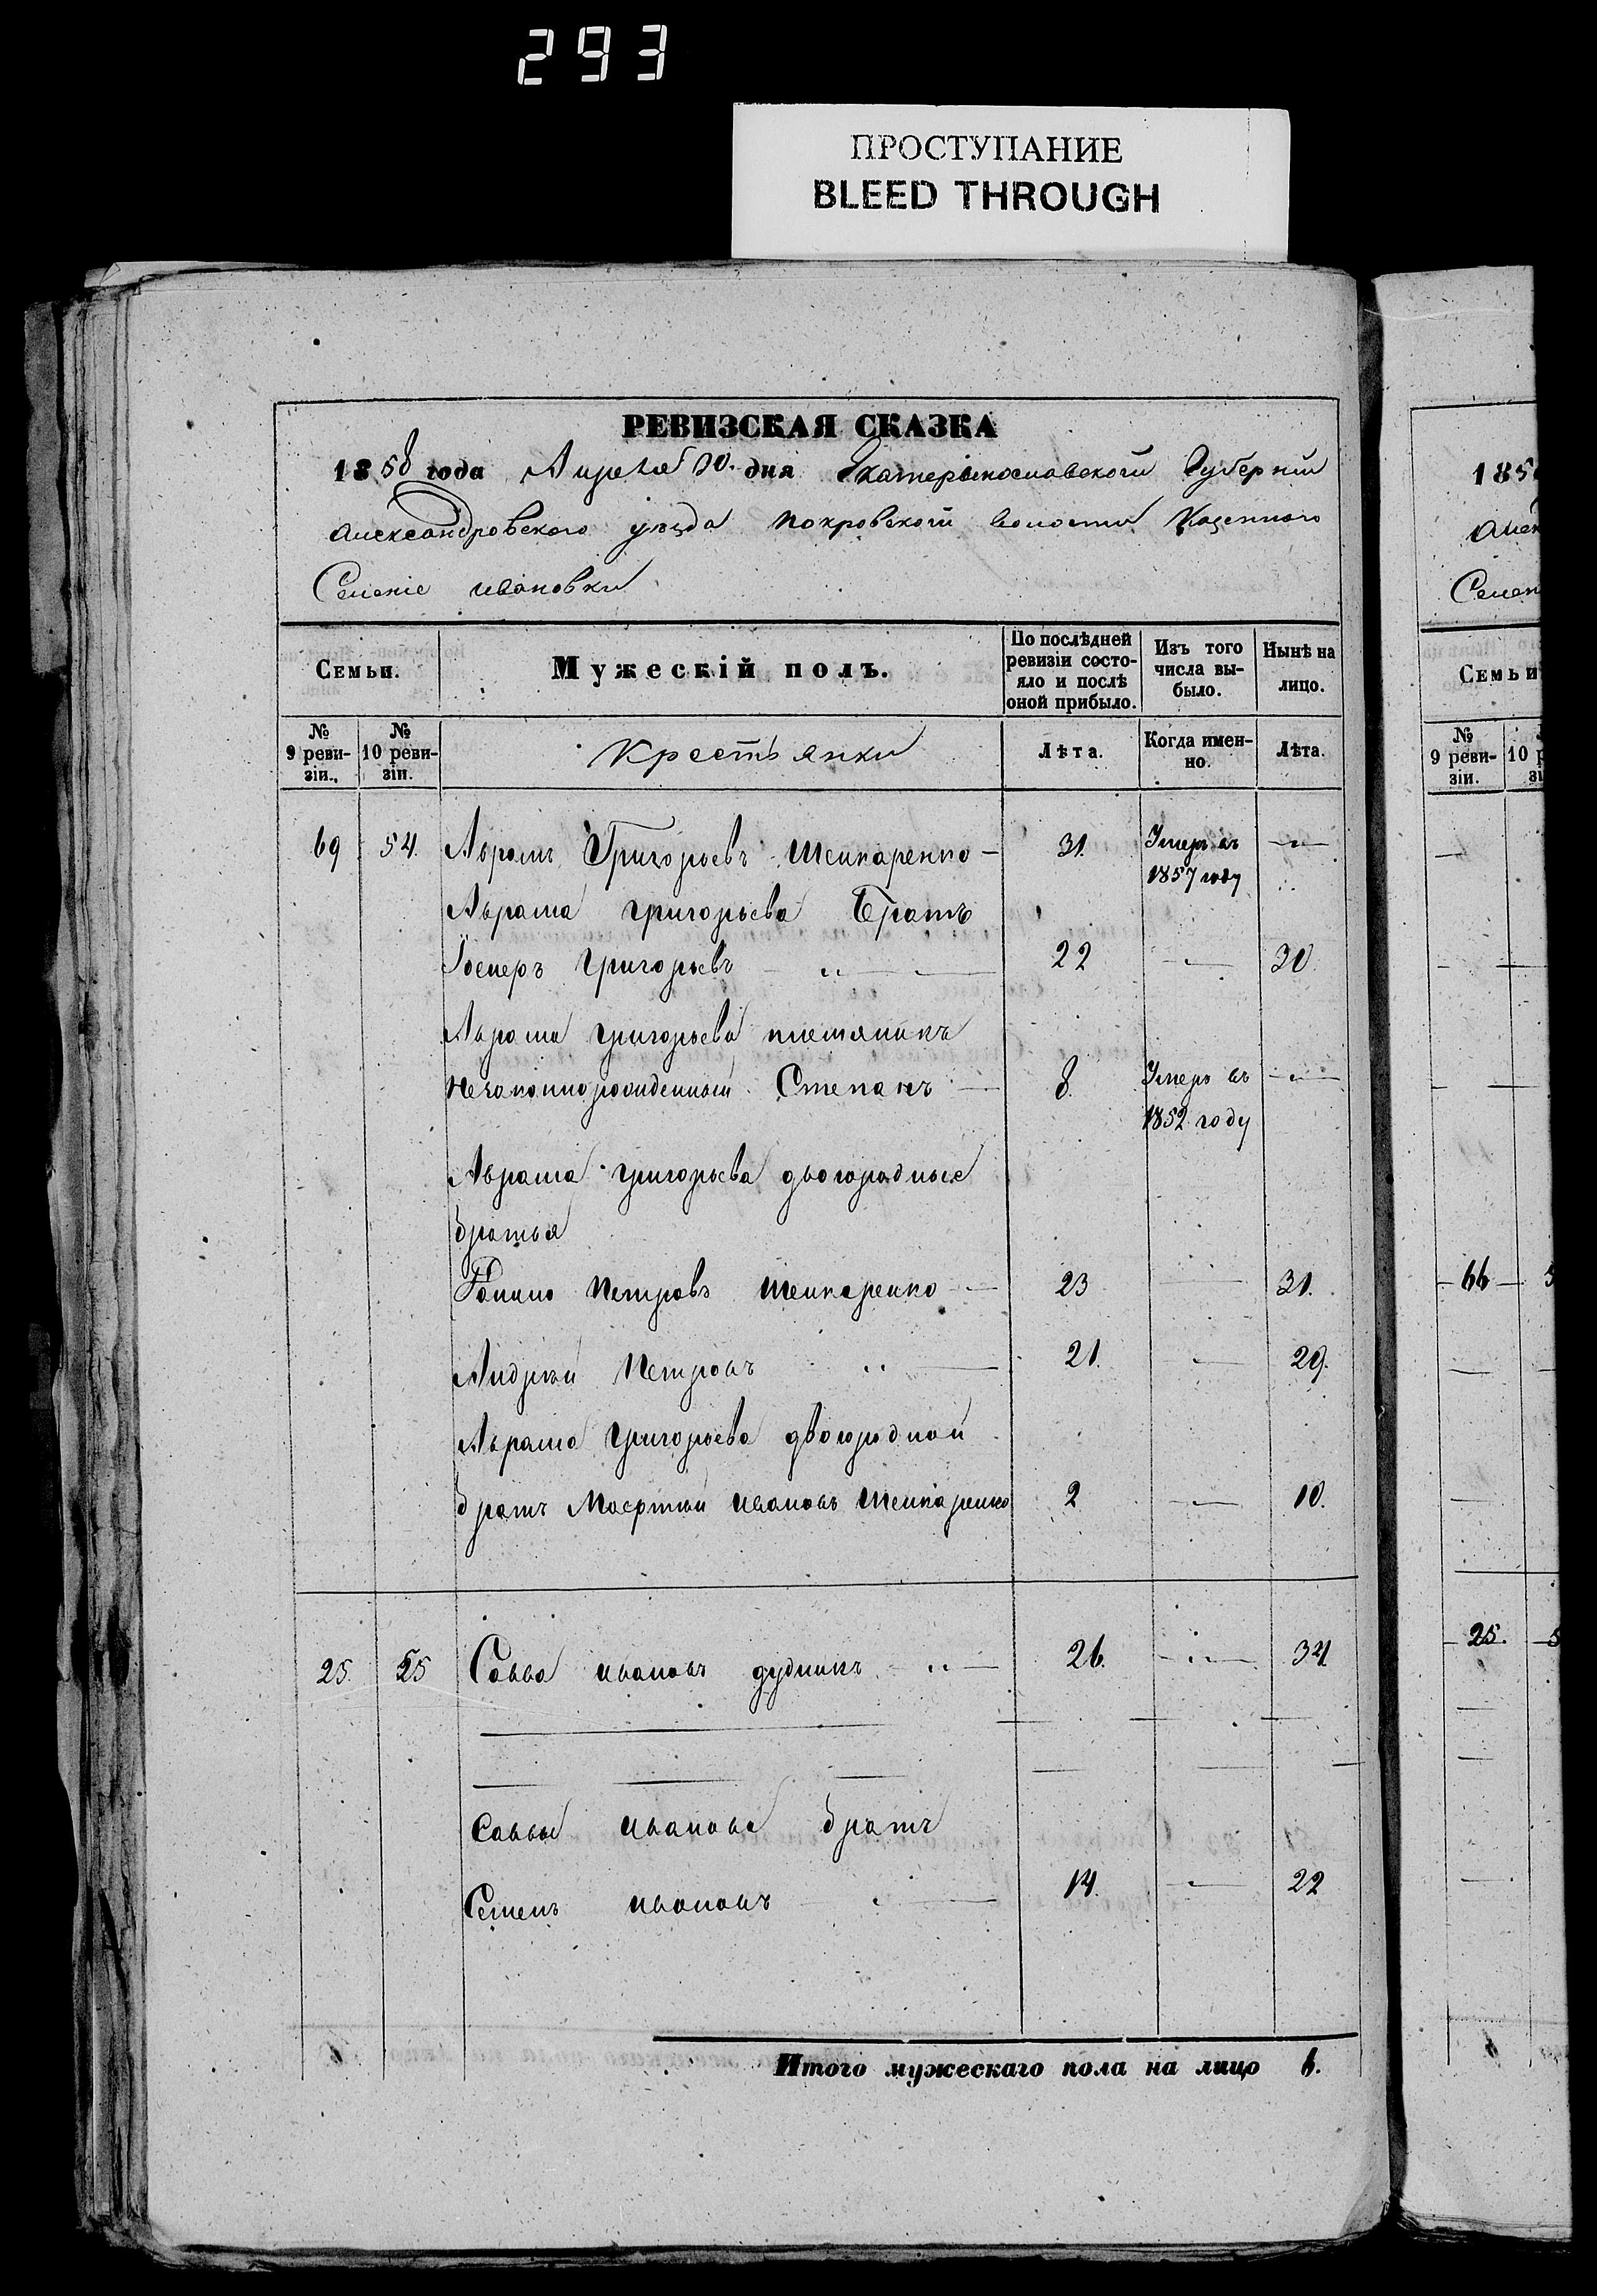 293
ПРОСТУПАНИЕ
BLEED THROUGH
РЕВИЗСКАЯ СКАЗКА
1858 года Апреля 30. дня Екатеринославской Губернии
Александровского уезда Покровской волости Казенного
Селение Ивановки
Семьи.
Мужескій полъ.
По послѣдней ревизіи состо-
яло и послѣ оной прибыло.
Изъ того числа вы-
было.
Нынѣ на лицо.
№ 9 реви-
зіи.
№ 10 реви-
зіи.
Крестьянки
Лѣта.
Когда имен-
но.
Лѣта.
69 54. Аврамъ Григорьевъ 31. Умеръ въ
1857 году
Аврама Григорьева Братъ
Григорьевъ 22 30
Аврама Григорьева племяникъ
Незаконнорожденный Степанъ 8. Умеръ въ
1852 году
Аврама Григорьева двоюродные
братья
Петровъ 23 31.
Андрей Петровъ 21. 29.
Аврама Григорьева двоюродной
братъ Ивановъ 2 10.
25. 55 Савва Ивановъ дудникъ 26. 34
Саввы Иванова братъ
Семенъ Ивановъ 14. 22
Итого мужескаго пола на лицо 6.
185
Алек
Селен
Семьи
№ 9 реви-
зіи.
66
25.